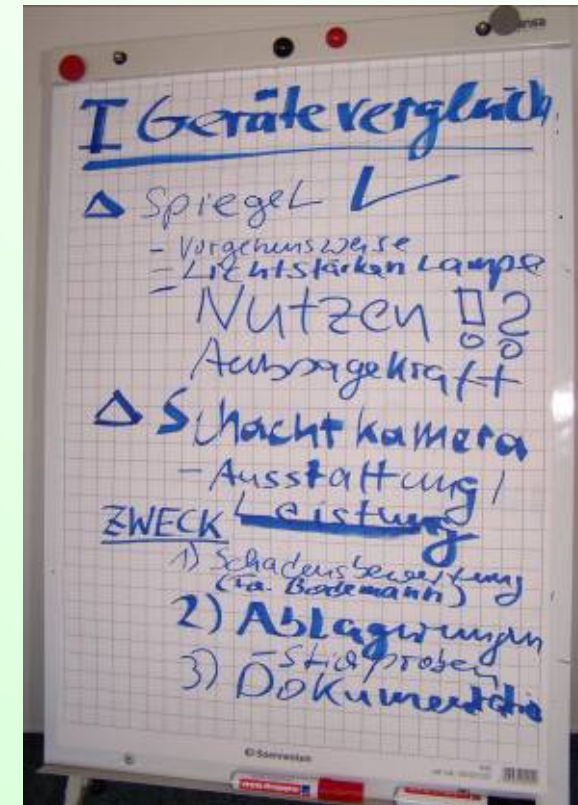 I Gerätevergleich
△ Spiegel ✓
- Vorgehensweise
= Lichtstärken Lampe
Nutzen !?
Aussagekraft
△ Schachtkamera
- Ausstattung /
Leistung
ZWECK
1) Schadensbewertung
(Fa. Bodemann)
2) Ablagerungen
- Stichproben
3) Dokumentatio